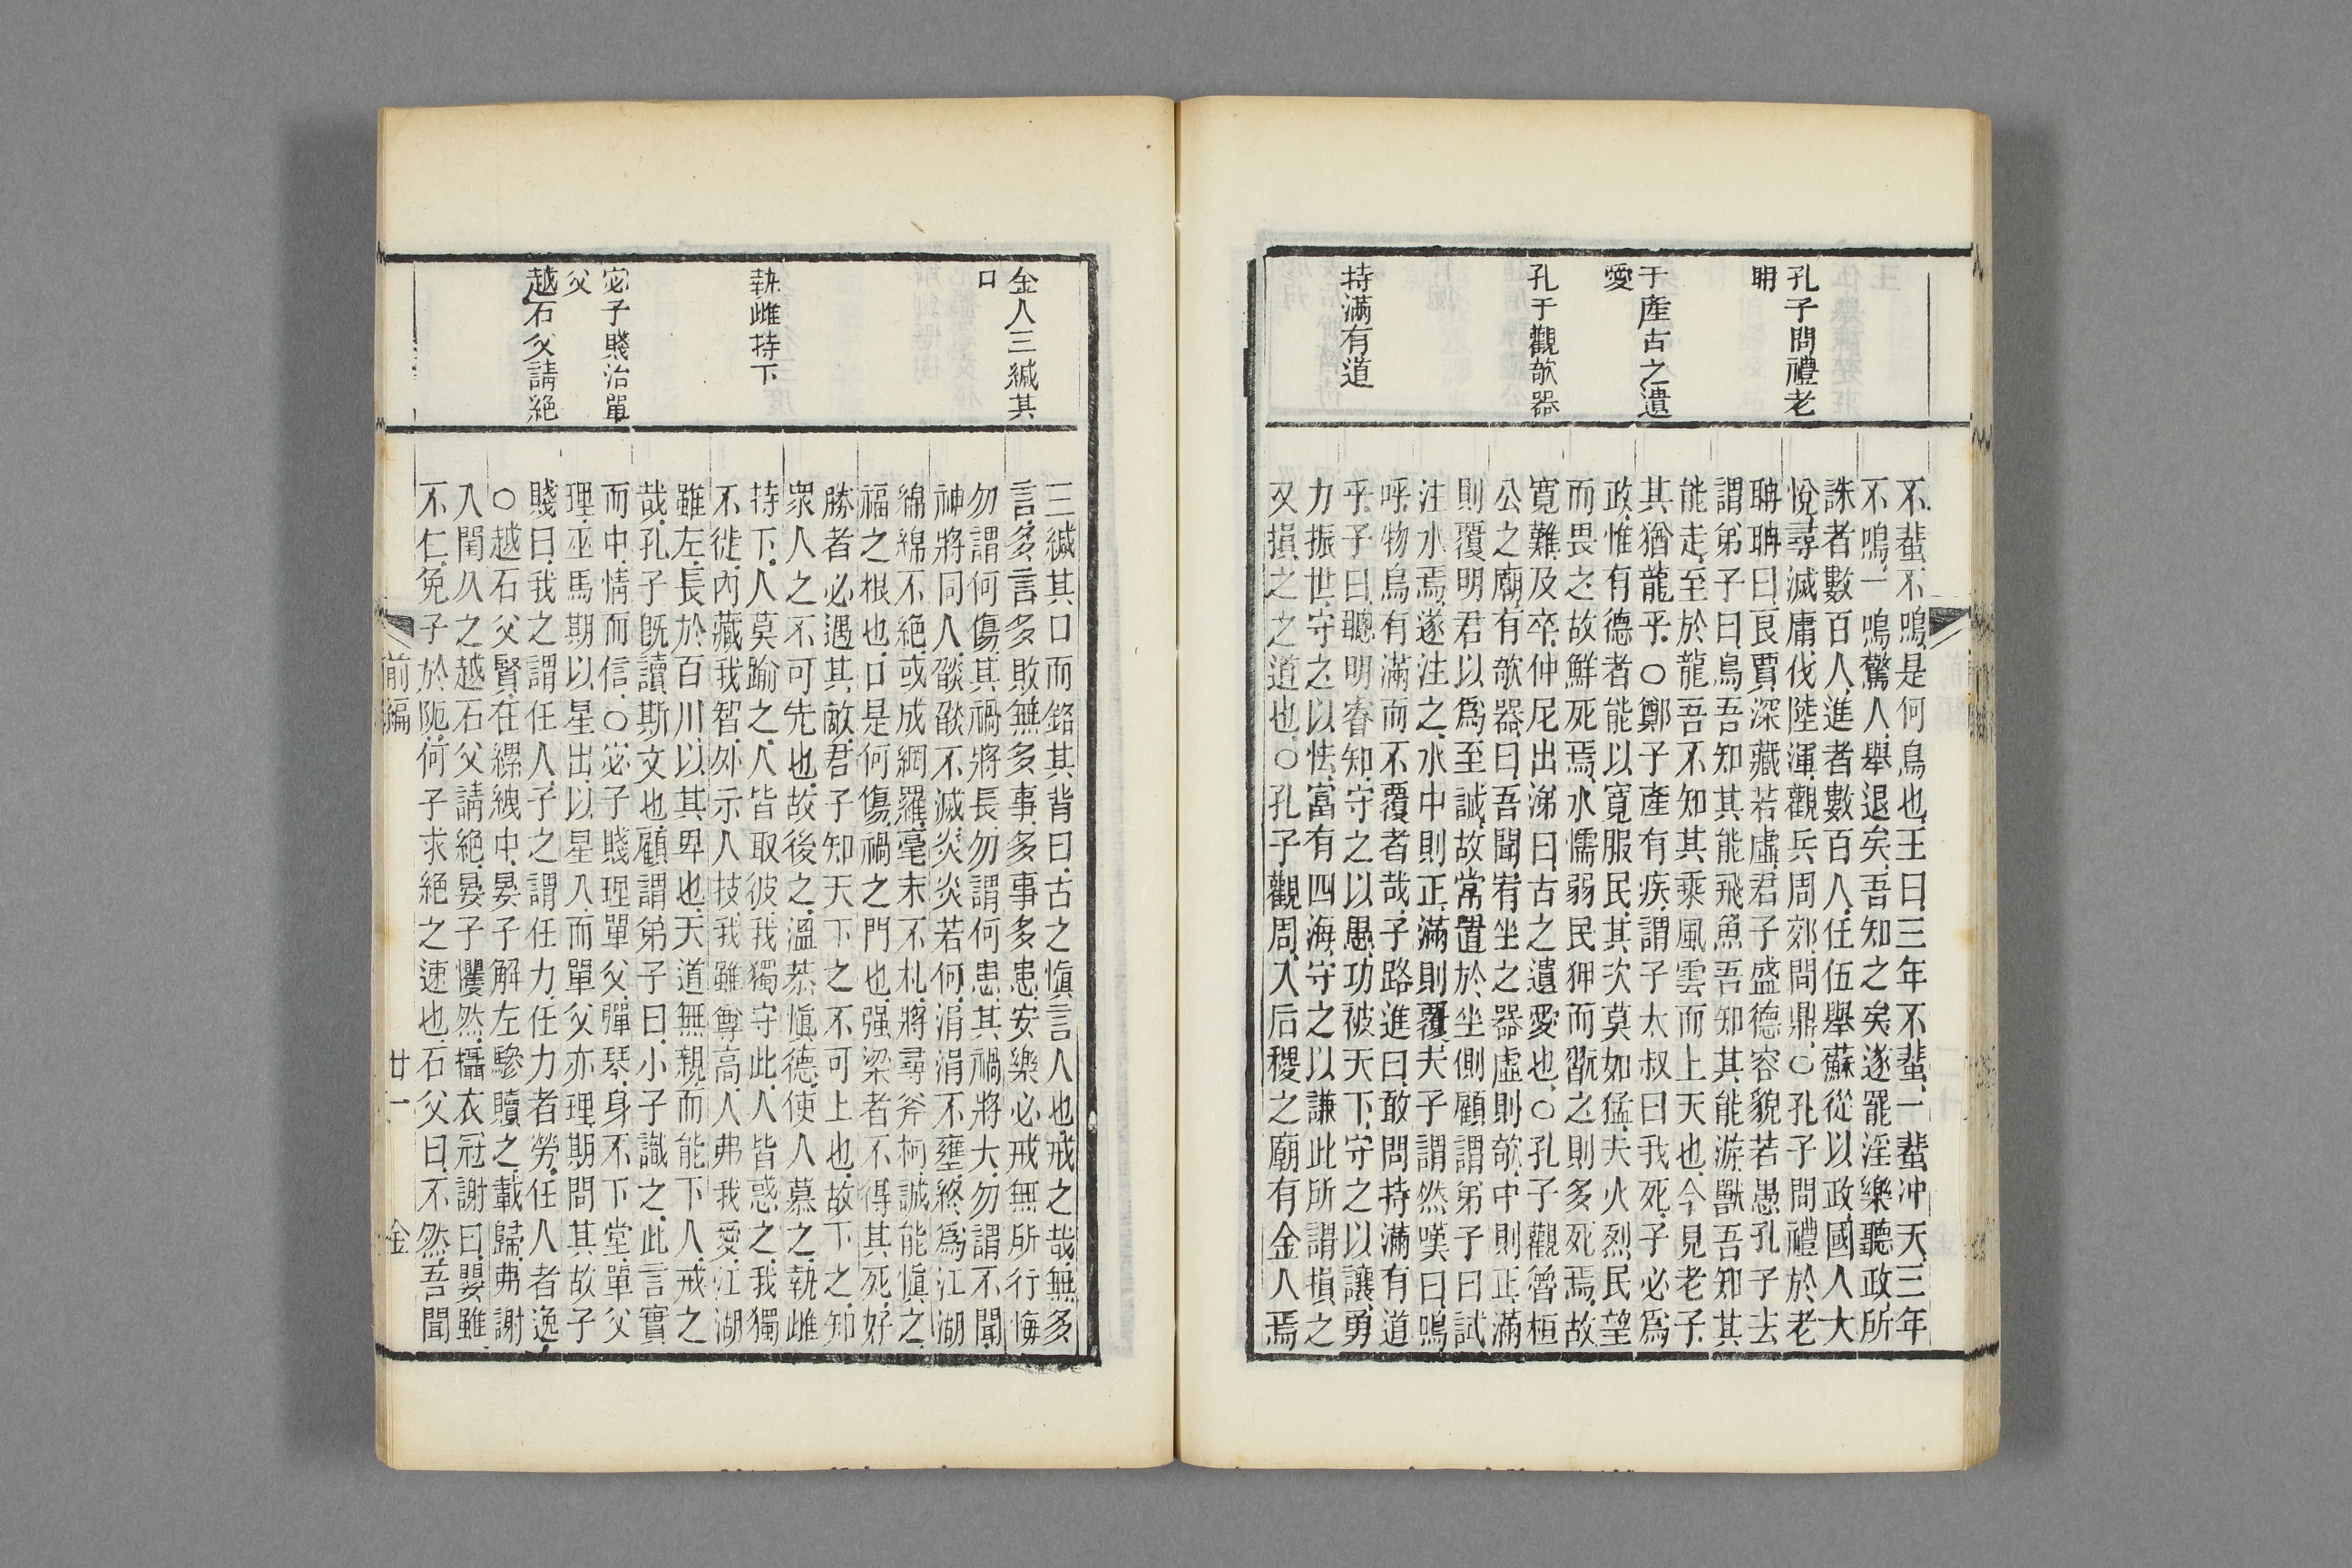 孔子問禮老
聃
子產古之遺
愛
孔子觀欹器
持滿有道
不蜚不鳴是何鳥也王曰三年不蜚一蜚沖天三年
不鳴一鳴驚人舉退矣吾知之矣遂罷淫樂聽政所
誅者數百人進者數百人任伍舉蘇從以政國人大
悅尋滅庸伐陸渾觀兵周郊問鼎○孔子問禮於老
聃聃曰良賈深藏若虛君子盛德容貌若愚孔子去
謂弟子曰鳥吾知其能飛魚吾知其能游獸吾知其
能走至於龍吾不知其乘風雲而上天也今見老子
其猶龍乎○鄭子產有疾謂子太叔曰我死子必爲
政惟有德者能以寬服民其次莫如猛夫火烈民望
而畏之故鮮死焉水懦弱民狎而翫之則多死焉故
寬難及卒仲尼出涕曰古之遺愛也○孔子觀魯桓
公之廟有欹器曰吾聞宥坐之器虛則欹中則正滿
則覆明君以爲至誠故常置於坐側顧謂弟子曰試
注水焉遂注之水中則正滿則覆夫子謂然嘆曰嗚
呼物烏有滿而不覆者哉子路進曰敢問持滿有道
乎子曰聰明睿知守之以愚功被天下守之以讓勇
力振世守之以怯富有四海守之以謙此所謂損之
又損之之道也○孔子觀周入后稷之廟有金人焉
金人三緘其
口
執雌持下
宓子賤治單
父
越石父請絕
三緘其口而銘其背曰古之慎言人也戒之哉無多
言多言多敗無多事多事多患安樂必戒無所行悔
勿謂何傷其禍將長勿謂何患其禍將大勿謂不聞
神將同人燄燄不滅炎炎若何涓涓不壅終爲江湖
綿綿不絕或成網羅毫末不札將尋斧柯誠能慎之
福之根也口是何傷禍之門也强梁者不得其死好
勝者必遇其敵君子知天下之不可上也故下之知
眾人之不可先也故後之溫恭慎德使人慕之執雌
持下人莫踰之人皆取彼我獨守此人皆惑之我獨
不徙內藏我智外示人技我雖尊高人弗我愛江湖
雖左長於百川以其卑也天道無親而能下人戒之
哉孔子既讀斯文也顧謂弟子曰小子識之此言實
而中情而信○宓子賤理單父彈琴身不下堂單父
理巫馬期以星出以星入而單父亦理期問其故子
賤曰我之謂任人子之謂任力任力者勞任人者逸
○越石父賢在縲絏中晏子解左驂贖之載歸弗謝
入閨久之越石父請絕晏子懼然攝衣冠謝曰嬰雖
不仁免子於阨何子求絕之速也石父曰不然吾聞
前編
廿一
金